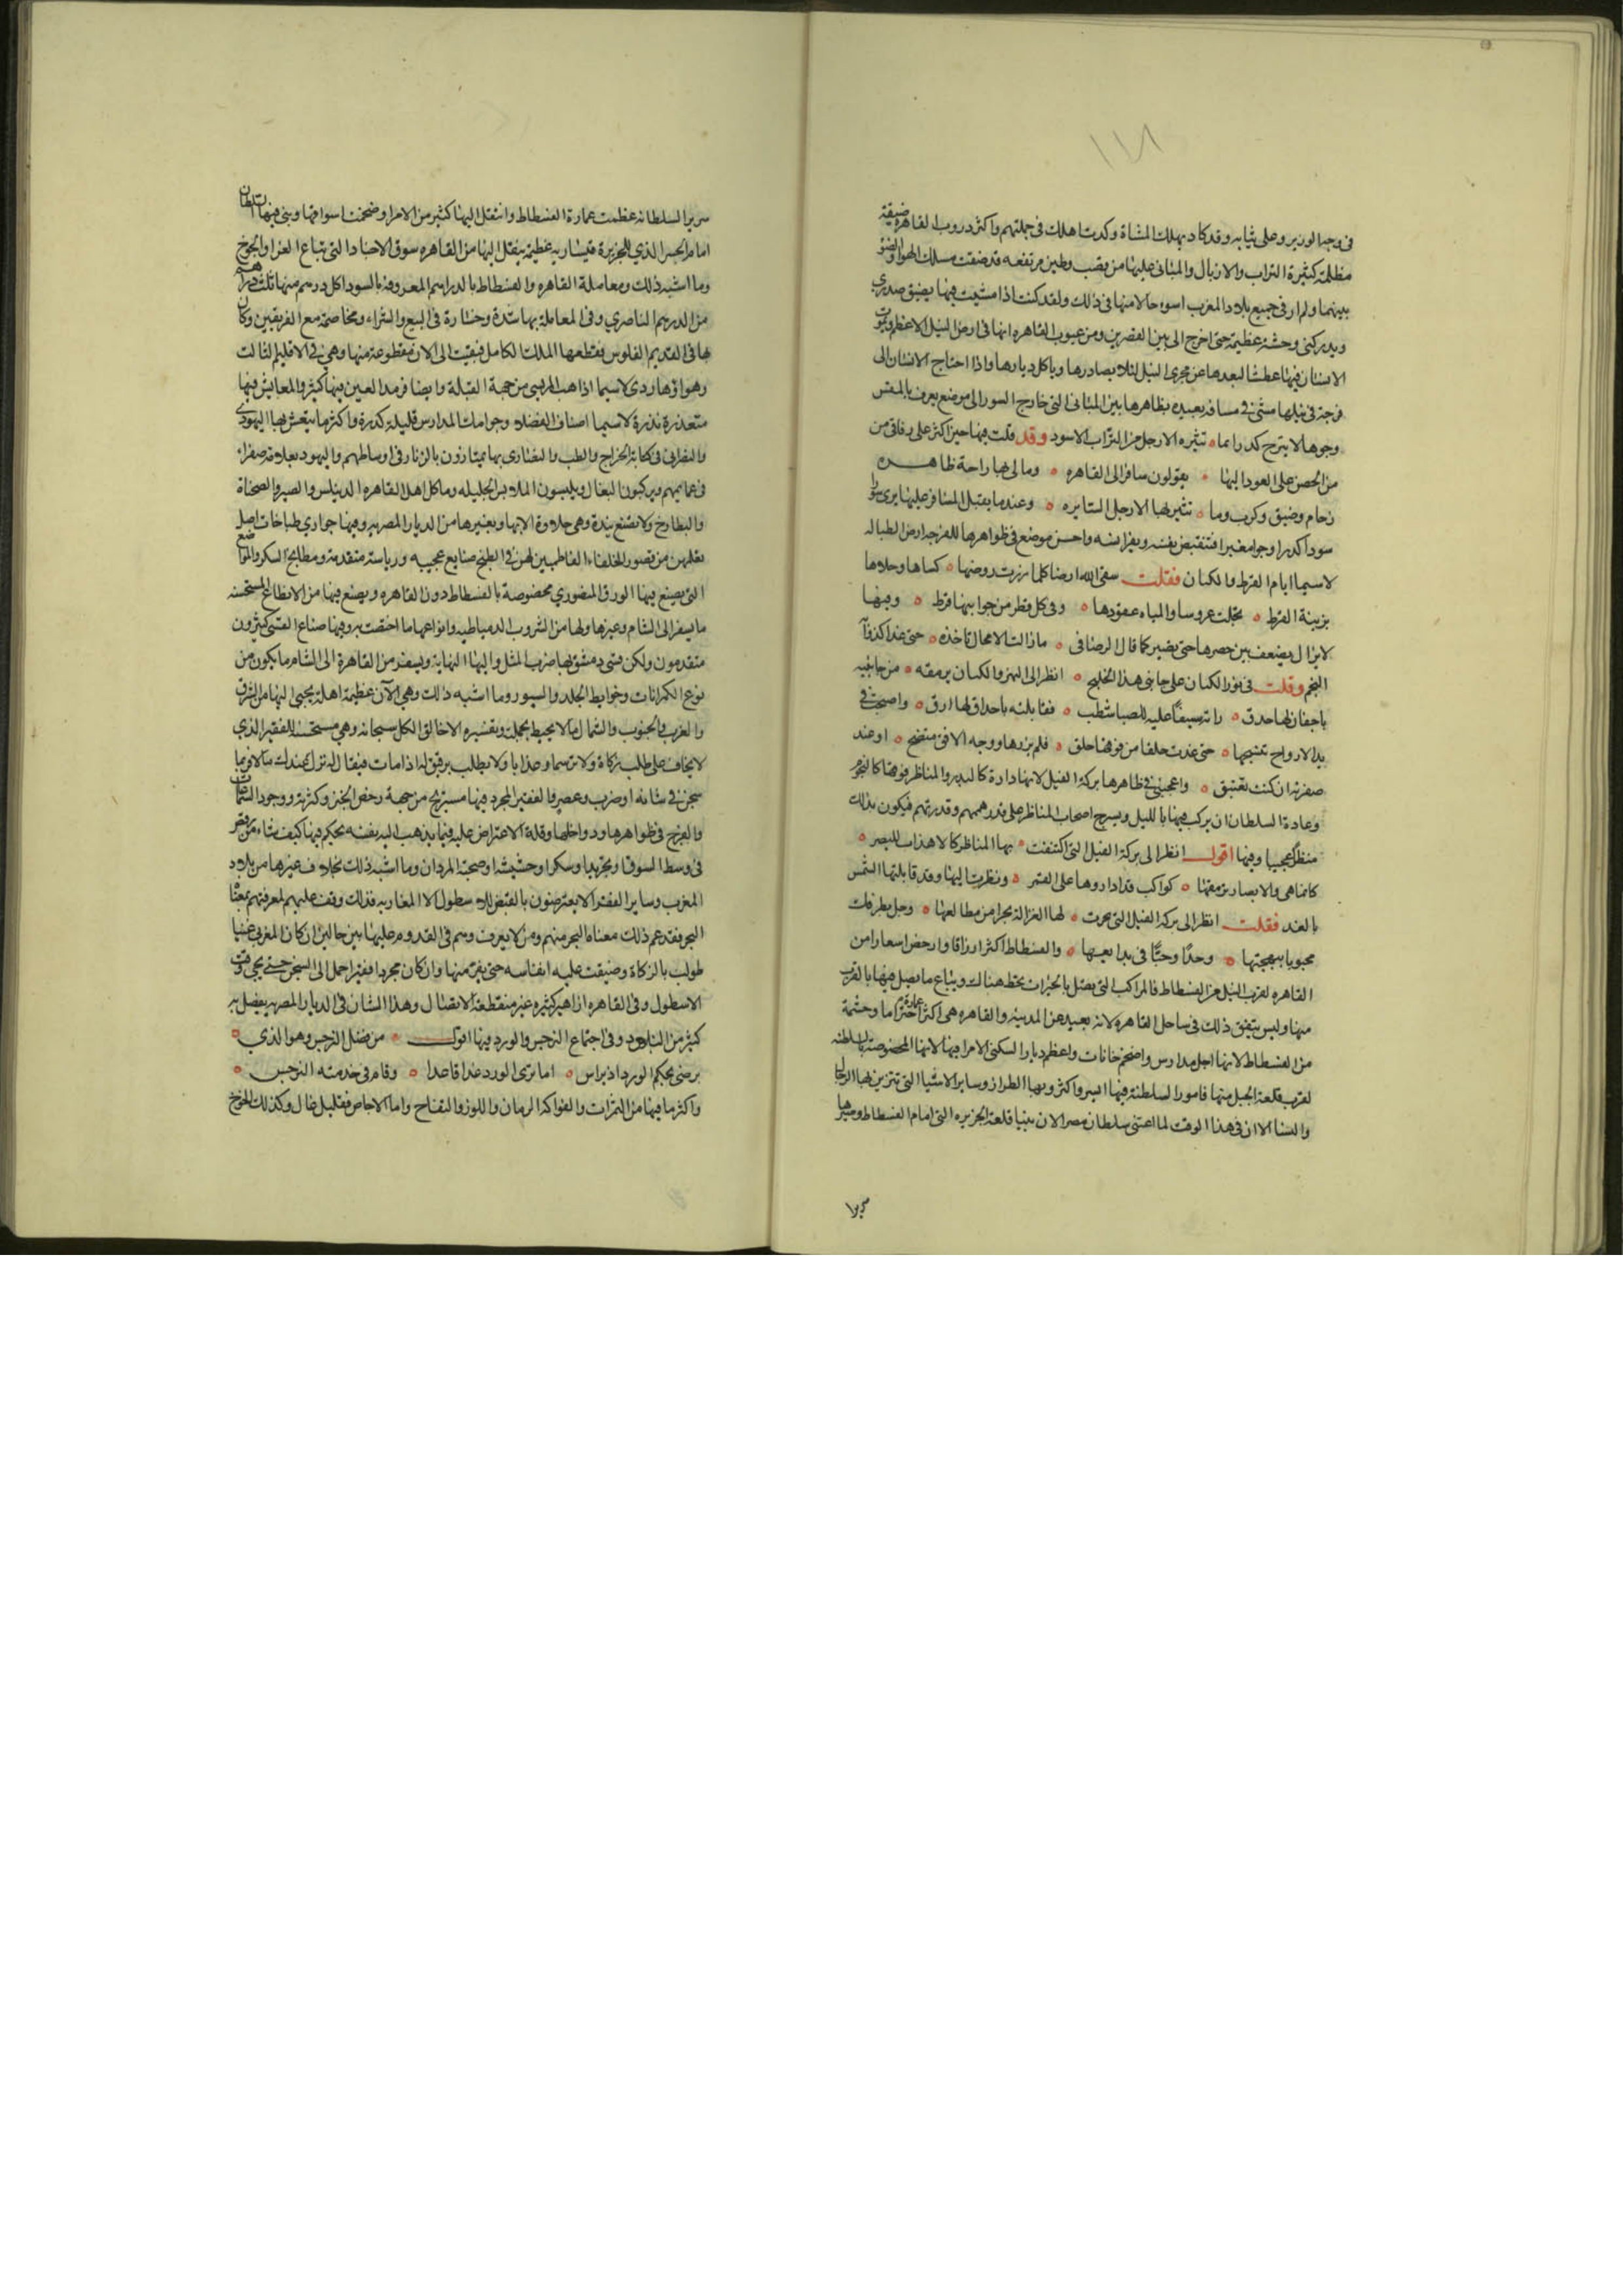 ١١٨
في وجه الوزير وعلى ثيابه وقد كاد يهلك المشاة وكدت اهلك في جملتهم واكثر دروب القاهرة ضيقة
مظلمة كثيرة التراب والازبال والمباني عليها من قصب وطين مرتفعه قد ضيقت مسلك الهوا والضو
بينهما ولم ار في جميع بلاد المغرب اسوء حالا منها في ذلك ولقد كنت اذا مشيت فيها يضيق صدري
ويدركني وحشة عظيمة حتى اخرج الى بين القصرين ومن عيوب القاهره انها في ارض النيل الاعظم ويموت
الانسان فيها عطشا لبعدها عن مجرى النيل لئلا يصادرها وياكل ديارها واذا احتاج الانسان الى
فرجة في نيلها مشى في مسافة بعيده بظاهرها بين المباني التي خارج السور الى موضع يعرف بالمقس
وجوها لا يبرح كدرا بما ه تثيره الارجل من التراب الاسود وقد قلت فيها حين اكثر علي رفاقي من
من الحض على العود اليها ه يقولون سافر الى القاهره ه وما لي بها راحة ظاهره
زحام وضيق وكرب وما ه تثير بها الارجل السايره ه وعند ما يقبل المسافر عليها يرى سورا
سودا كدرا وجوا مغبرا فتنقبض نفسه ويفر انسه واحسن موضع في ظواهرها للفرجه ارض الطباله
لاسيما ايام القرط والكتان فقلت سقى الله ارضا كلما زرت روضها ه كساها وحلاها
بزينة القرط ه تجلت عروسا والمياه عقودها ه وفي كل قطر من جوانبها قرط ه وفيها
لا يزال يضعف بين خصرها حتى يصير كما قال الرصافي ه ما زالت الامحال تاخذه ه حتى غدا كذوابة
النجم وقلت في نور الكتان على جانبي هذا الخليج ه انظر الى النهر والكتان يرمقه ه من جانبيه
باجفان لها حدق ه راته سيفا عليه للصبا شطب ه فقابلته باحداق لها ارق ه واصبحت في
يد الارواح تنسجها ه حتى غدت حلقا من فوقها حلق ه فلم نزرها ووجه الافق متضح ه او عند
صفرته ان كنت تغتبق ه واعجبني في ظاهرها بركة الفيل لانها دارة كالبدر والمناظر فوقها كالنجوم
وعادة السلطان ان يركب فيها بالليل ويسرج اصحاب المناظر على قدر هممهم وقدرتهم فيكون بذلك
منظرا عجيبا وفيها اقول انظر الى بركة الفيل التي اكتنفت ه بها المناظر كالاهداب للبصر ه
كانما هي والابصار ترمقها ه كواكب قد اداروها على القمر ه ونظرت اليها وقد قابلتها الشمس
بالغدو فقلت انظر الى بركة الفيل التي نحرت ه لها الغزالة نحرا من مطالعها ه وخل طرفك
محبوبا ببهجتها ه وحدا وحبا في بدايعها ه والفسطاط اكثر ارزاقا وارخص اسعارا من
القاهره لقرب النيل من الفسطاط فالمراكب التي تصل بالخيرات تحط هنالك ويباع ما يصل فيها بالقرب
منها وليس يتفق ذلك في ساحل القاهره لانه بعيد عن المدينه والقاهره هي اكثر عمارة واحتراما وحشمة
من الفسطاط لانها اجل مدارس واضخم خانات واعظم ديارا لسكنى الامرا فيها لانها المخصوصة بالسلطنه
لقرب قلعة الجبل منها فامور السلطنة فيها ايسر واكثر وبها الطراز وساير الاشيا التي تتزين بها الرجال
والنسا الا ان في هذا الوقت لما اعتنى سلطان مصر الان ببنيا قلعة الجزيره التي امام الفسطاط وصيرها
سريرا
سرير السلطانه عظمت عمارة الفسطاط وانتقل اليها كثير من الامرا وضخمت اسواقها وبنى فيها السلطان
امام الجسر الذي للجزيرة قيساريه عظيمة ينقل اليها من القاهره سوق الاجناد التي تباع الفرا والجوخ
وما اشبه ذلك ومعاملة القاهره والفسطاط بالدراهم المعروفة بالسودا كل درهم منها ثلث درهم
من الدرهم الناصري وفي المعاملة بها شدة وخسارة في البيع والشراء ومخاصمة مع الفريقين وكان
بها في القديم الفلوس فقطعها الملك الكامل فبقيت الى الان مقطوعة منها وهي في الاقليم الثالث
وهواؤها ردي لاسيما اذا هب المريسي من جهة القبلة وايضا فرمد العين فيها كثير والمعايش فيها
متعذرة نذرة لاسيما اصناف الفضلاء وجوامك المدارس قليلة كدرة واكثر ما يتعيش بها اليهودي
والنصراني في كتابة الخراج والطب والنصارى بها يمتازون بالزنار في اوساطهم واليهود بعلامة صفراء
في عمايمهم ويركبون البغال ويلبسون الملابس الجليله وماكل اهل القاهره الدينلس والصير والصحناة
والبطارخ ولا تصنع نيدة وهي حلاوة الا بها وبغيرها من الديار المصريه وفيها جواري طباخات اصل
تعلمهن من قصور الخلفاء الفاطميين لهن في الطبخ صنايع عجيبه ورياسة متقدمة ومطابخ السكر والمواضع
التي يصنع فيها الورق المنصوري مخصوصة بالفسطاط دون القاهره ويصنع فيها من الانطاع المستحسنه
ما يسفر الى الشام وغيرها ولها من الشروب الدمياطيه وانواعها ما اختصت به وفيها صناع القسي كثيرون
متقدمون ولكن قسي دمشق بها يضرب المثل واليها النهاية ويسفر من القاهرة الى الشام ما يكون من
نوع الكمرانات وخرايط الجلد والسيور وما اشبه ذلك وهي الآن عظيمة اهلة يجبى اليها من الشرق
والغرب والجنوب والشمال ما لا يحيط بجملته وتفسيره الا خالق الكل سبحانه وهي مستحسنة للفقير الذي
لا يخاف على طلب زكاة ولا ترسما وعذابا ولا يطلب برفيق له اذا مات فيقال له ترك عندك مالا فربما
سجن في شانه او ضرب وعصر والفقير المجرد فيها مستريح من جهة رخص الخبز وكثرته ووجود السماعات
والفرج في ظواهرها ودواخلها وقلة الاعتراض عليه فيما يذهب اليه نفسه يحكم فيها كيف شاء من رقص
في وسط السوق او تجريد او سكر او حشيشه او صحبة المردان وما اشبه ذلك بخلاف غيرها من بلاد
المغرب وساير الفقرا لا يعترضون بالقبض للاسطول الا المغاربه فذلك وقف عليهم لمعرفتهم بمعاناة
البحر فقد عم ذلك معناة البحر منهم ومن لا يعرف وهم في القدوم عليها بين حالين ان كان المغربي غنيا
طولب بالزكاة وضيقت عليه انفاسه حتى يفر منها وان كان مجردا فقيرا حمل الى السجن حتى يجي وقت
الاسطول وفي القاهره ازاهير كثيره غير منقطعة الاتصال وهذا الشان في الديار المصريه يفضل به
كثير من البلاد وفي اجتماع النرجس والورد فيها اقول ه من فضل النرجس وهو الذي ه
يرضى بحكم الورد اذ يراس ه اما ترى الورد غدا قاعدا ه وقام في خدمته النرجس ه
واكثر ما فيها من الثمرات والفواكه الرمان واللوز والتفاح واما الاجاص فقليل غال وكذلك الخوخ